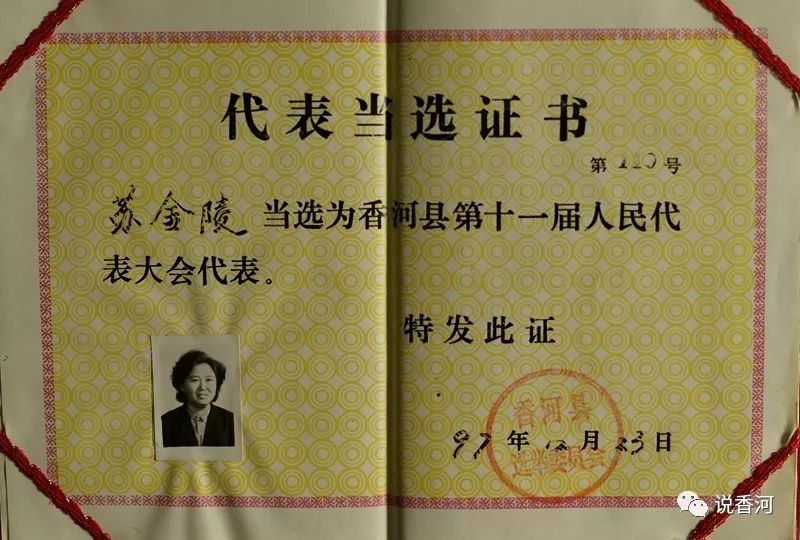 代表当选证书
第110号
苏金陵 当选为香河县第十一届人民代
表大会代表。
特发此证
香河县
选举委员会
97年12月23日
说香河